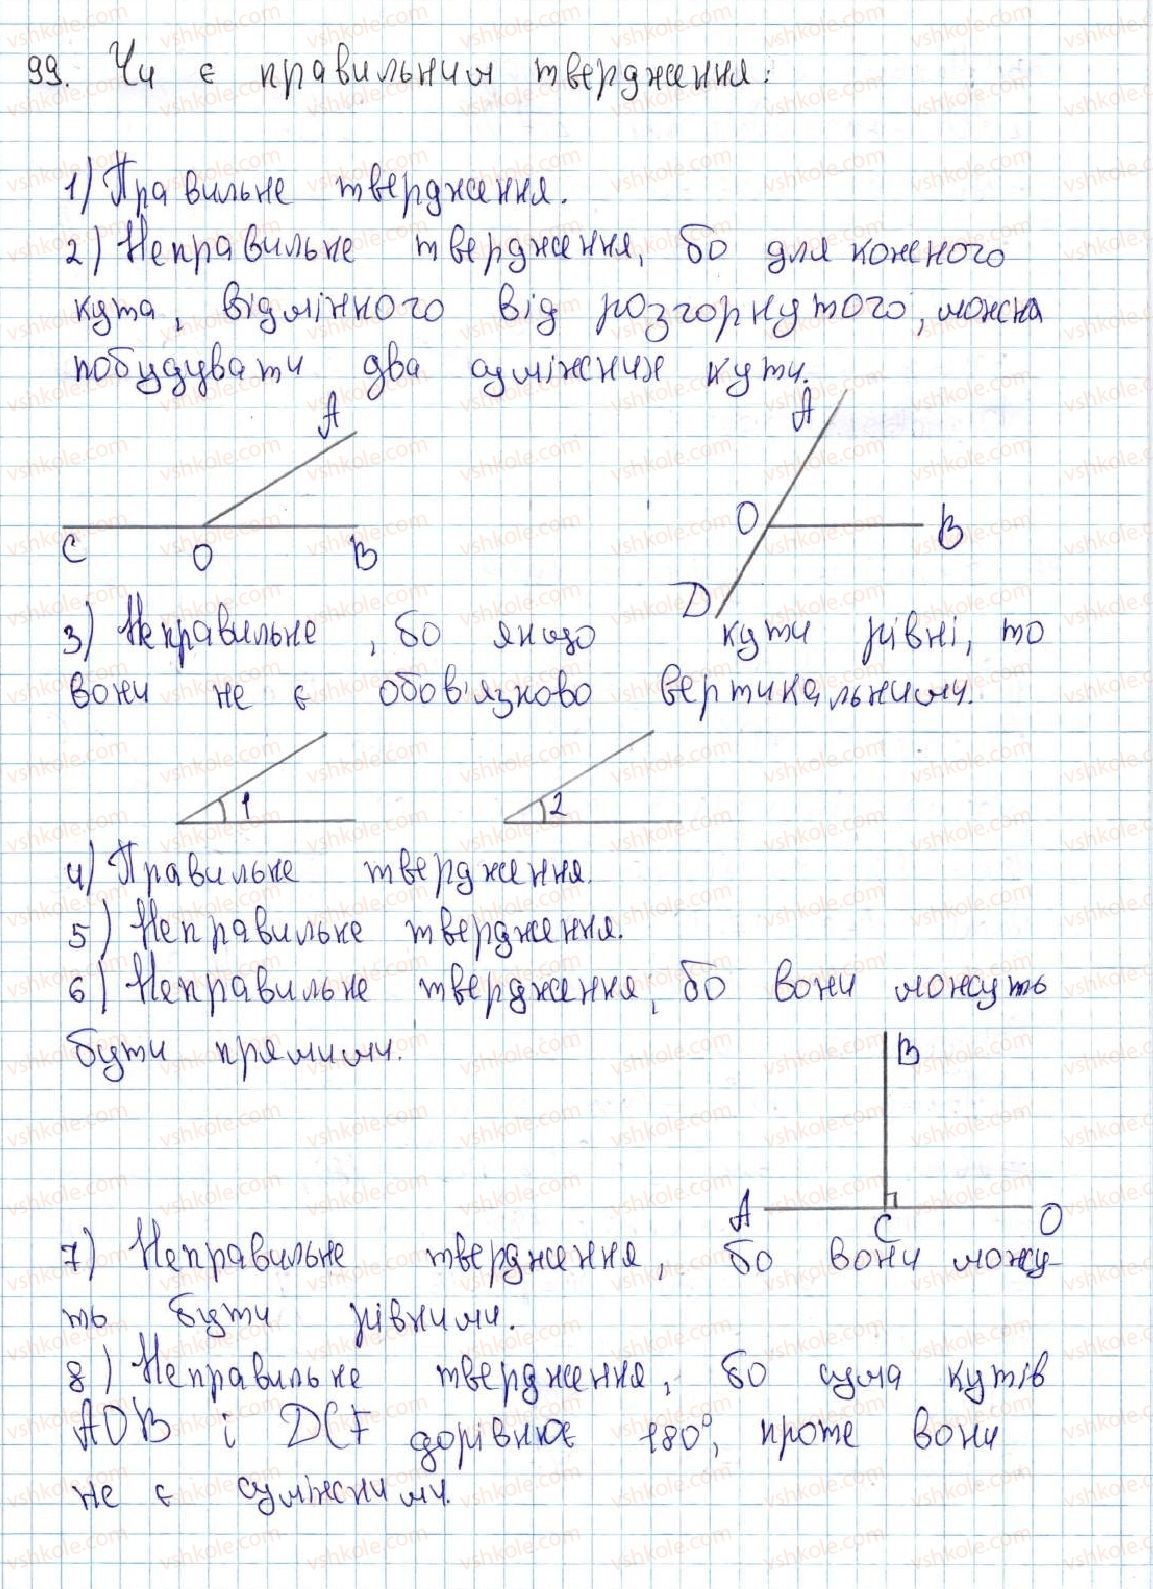 99. Чи є правильним твердження:
1) Правильне твердження.
2) Неправильне твердження, бо для кожного
кута, відмінного від розгорнутого, можна
побудувати два суміжних кути.
A
C O B
A
O B
D
3) Неправильне, бо якщо кути рівні, то
вони не є обов'язково вертикальними.
1 2
4) Правильне твердження.
5) Неправильне твердження.
6) Неправильне твердження, бо вони можуть
бути прямими.
B
A C O
7) Неправильне твердження, бо вони можу-
ть бути рівними.
8) Неправильне твердження, бо сума кутів
AOB і DCF дорівнює 180°, проте вони
не є суміжними.
vshkole.com